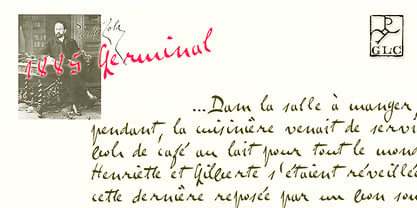 1885 Germinal
GLC
...Dam la salle à manger,
pendant, la cuisinière venait de servi
bols de café au lait pour tout le mond
Henriette et Gilberte s'étaient réveillée
cette dernière reposée par un bon som